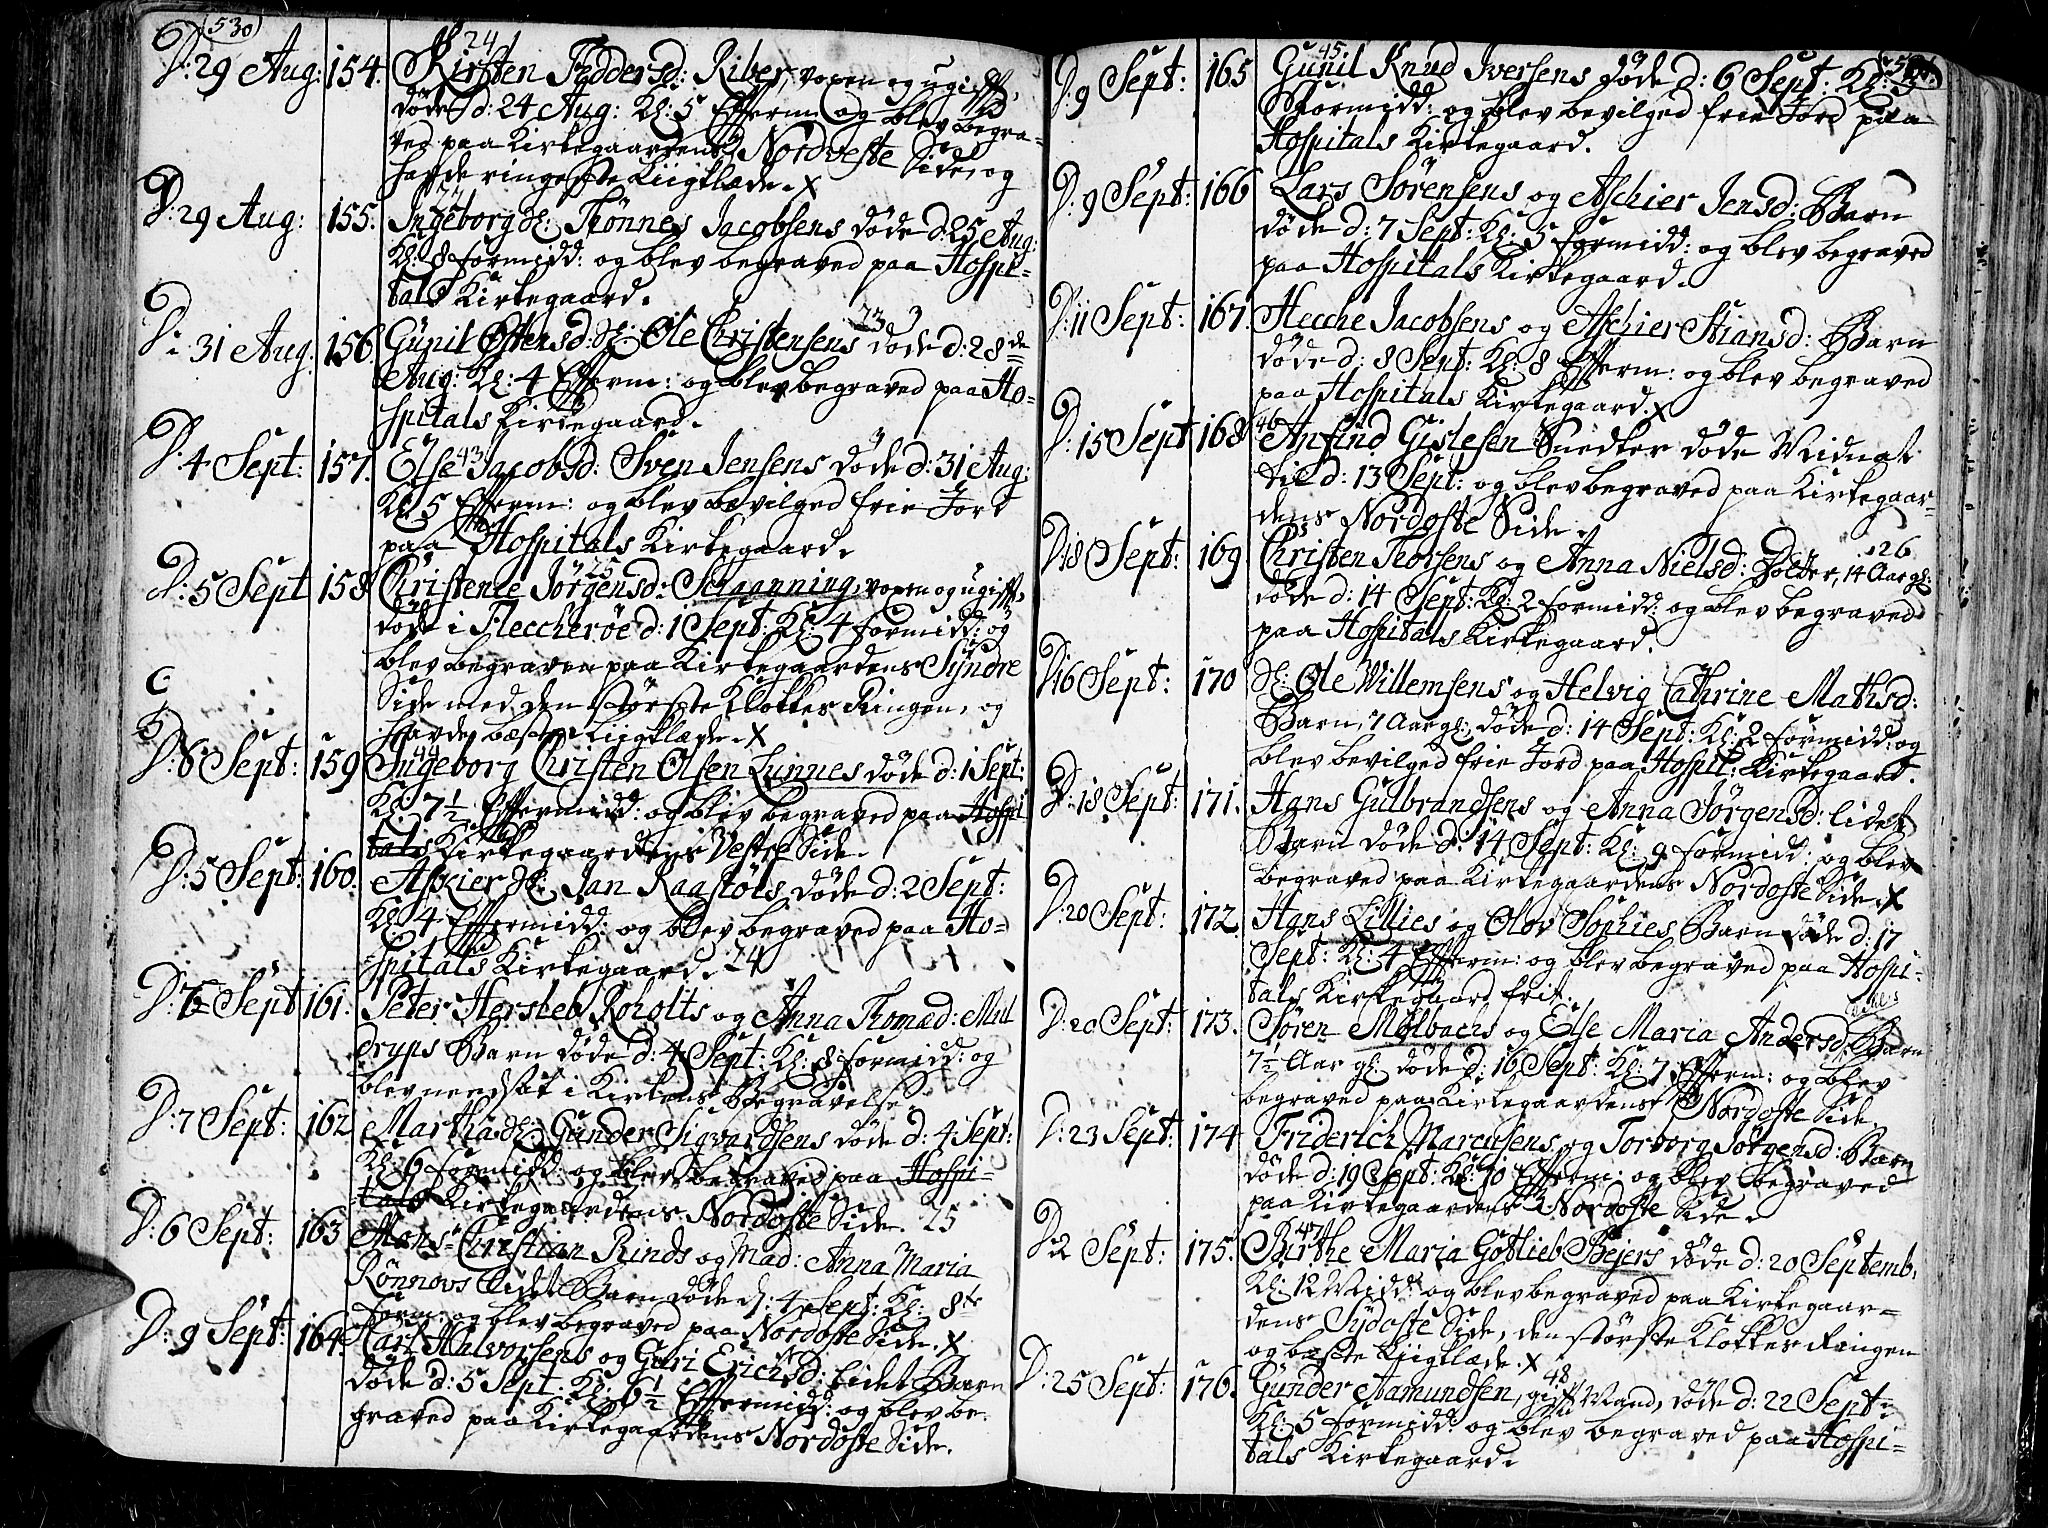 530
24
D: 29 Aug: 154. Kirsten Feddersd: Riber, voxen og ugift,
døde d: 24 Aug: Kl: 5 Efferm og blev begra-
ven paa Kirkegaardens Nordveste Side, og
hafde ringeste Liigklæde. X
D: 29 Aug: 155. Ingeborg Sl: Tønnes Jacobsens døde d: 25 Aug:
Kl: 8 formidd: og blev begraved paa Hospi-
tals Kirkegaard.
D: 31 Aug: 156. Gunil Estensd: Sl: Ole Christensens døde d: 28de
Aug: Kl: 4 Efferm: og blev begraved paa Ho-
spitals Kirkegaard.
43
D: 4 Sept: 157. Else Jacobsd: Sven Jensens døde d: 31 Aug:
Kl: 5 Efferm: og blev bevilged frie Jord
paa Hospitals Kirkegaard.
25
D: 5 Sept 158 Christence Jørgensd: Schaanning, voxen og ugift,
døde i Fleccherøe d: 1 Sept: Kl: 4 formidd: og
blev begraven paa Kirkegaardens Syndre
Side med den største Klokkes Ringen, og
hafde beste Liigklæde. X
44
D: 6 Sept: 159 Ingeborg Christen Olsen Lunnes døde d: 1 Sept:
Kl: 7½ Effermidd: og blev begraved paa Hospi
tals Kirkegaardens Vestre Side.
D: 5 Sept: 160. Asxier Sl: Jan Raastøls døde d: 2 Sept:
Kl: 4 Effermidd: og blev begraved paa Ho-
spitals Kirkegaard. 24
D: 7 Sept 161. Peter Hersleb Roholts og Anna Thomad: Mul
dryps Barn døde d: 4 Sept: Kl: 8 formidd: og
blev needsat i Kirkens Begravelse.
D: 7 Sept: 162 Martha Sl: Gunder Sigvardsens døde d: 4 Sept:
Kl: 6 formidd: og blev begraved paa Hospi-
tals Kirkegaardens Nordoste Side. 25
D: 6 Sept: 163 Mons: Christian Rinds og Mad: Anna Maria
Rønnovs lidet Barn døde d: 4 Sept: Kl: 8te
form: og blev begraved paa Nordoste Side. X
D: 9 Sept: 164. Karl Halvorsens og Guri Erichsd: lidet Barn
døde d: 5 Sept: Kl: 6½ Effermidd: og blev be-
graved paa Kirkegaardens Nordoste Side.
45.
D: 9 Sept: 165 Gunil Knud Iversens døde d: 6 Sept: Kl: 5
Formidd: og blev bevilged frie Jord paa
Hospitals Kirkegaard.
D: 9 Sept: 166 Lars Sørensens og Aschier Jensd: Barn
døde d: 7 Sept: Kl: 5 formidd: og blev begraved
paa Hospitals Kirkegaard.
D: 11 Sept: 167. Hecche Jacobsens og Aschier Stiansd: Barn
døde d: 8 Sept: Kl: 8 Efferm: og blev begraved
paa Hospitals Kirkegaard. X
46
D: 15 Sept 168 Anfind Gislesen Snedker døde Midnat
tid d: 13 Sept: og blev begraved paa Kirkegaar-
dens Nordoste Side.
26
D: 18 Sept: 169 Christen Thorsens og Anna Nielsd: Dotter, 14 Aar gl:
døde d: 14 Sept: Kl: 2 formidd: og blev begraved
paa Hospitals Kirkegaard.
D: 16 Sept: 170 Sl: Ole Willemsens og Helvig Cathrine Mathsd:
Barn, 7 Aar gl: døde d: 14 Sept: Kl: 2 formidd: og
blev bevilged frie Jord paa Hospit: Kirkegaard.
D: 18 Sept: 171. Hans Gulbrandsens og Anna Jørgensd: lidet
Barn døde d: 14 Sept: Kl: 9 formidd: og blev
begraved paa Kirkegaardens Nordoste Side. X
D: 20 Sept: 172. Hans Lillies og Olov Sophies Barn døde d: 17
Sept: Kl: 4 Efferm: og blev begraved paa Hospi-
tals Kirkegaard frit.
D: 20 Sept: 173. Søren Mølbachs og Else Maria Andersd: Barn
7½ Aar gl: døde d: 16 Sept: Kl: 7 Efferm: og blev
begraved paa Kirkegaardens Nordoste Side.
D: 23 Sept: 174 Friderich Marcusens og Torborg Jørgensd: Barn
døde d: 19 Sept: Kl: 10 Efferm: og blev begraved
paa Kirkegaardens Nordoste Side.
47
D: 2 Sept: 175. Birthe Maria Gotlieb Beyers døde d: 20 Septemb:
Kl: 12 Midd: og blev begraved paa Kirkegaar-
dens Sydoste Side, den største Klokkes Ringen
og beste Liigklæde. X
48
D: 25 Sept: 176. Gunder Aamundsen, gift Mand, døde d: 22 Sept:
Kl: 5 formidd: og blev begraved paa Hospi-
tals Kirkegaard.